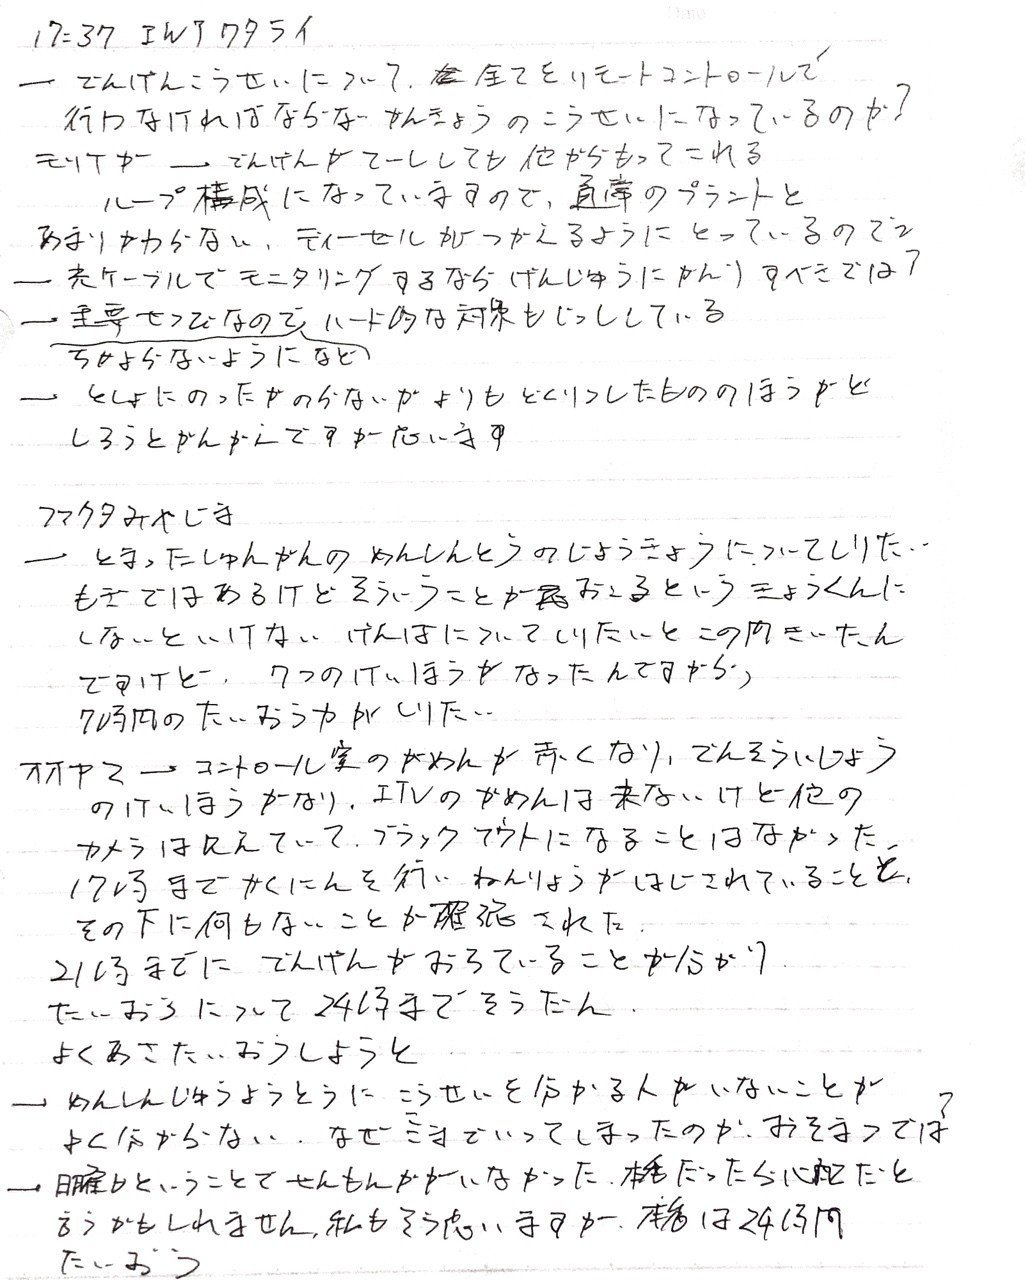 17:37 IWJ ワタライ
— でんげんこうせいについて、全てをリモートコントロールで
行わなければならないかんきょうのこうせいになっているのか?
モリTが — でんげんがてーししても他からもってこれる
ループ構成になっていますので、通常のプラントと
あまりかわらない、ディーゼルがつかえるようにとっているので
— 光ケーブルでモニタリングするならげんじゅうにかんりすべきでは?
— 重要せつびなので、ハード的な対策もじっししている
ちかよらないようになど
— としょにのったかのらないかよりもどくりつしたもののほうがと
しろうとかんがえですが思います
フマクタみやじま
— とまったしゅんかんのめんしんとうのじょうきょうについてしりたい
もぎではあるけどそういうことがおこるというきょうくんに
しないといけない げんばについてしりたいとこの間きいたん
ですけど、7つのけいほうがなったんですから、
7時間のたいおう力がしりたい
オオヤマ — コントロール室のがめんが赤くなり、でんそういじょう
のけいほうがなり、ITVのがめんは来ないけど他の
カメラは見えていて、ブラックアウトになることはなかった、
17時までかくにんを行い ねんりょうがはじされていることと、
その下に何もないことが確認された。
21時までに でんげんがおちていることが分かり
たいおうについて24時までそうだん。
よくあさたいおうしようと
— めんしんじゅうようとうに こうせいを分かる人がいないことが
よく分からない。なぜ三日までいってしまったのか、おそまつでは?
— 日曜日ということでせんもんかがいなかった、本番だったら心配だと
言うかもしれません、私もそう思いますが、本番は24時間
たいおう